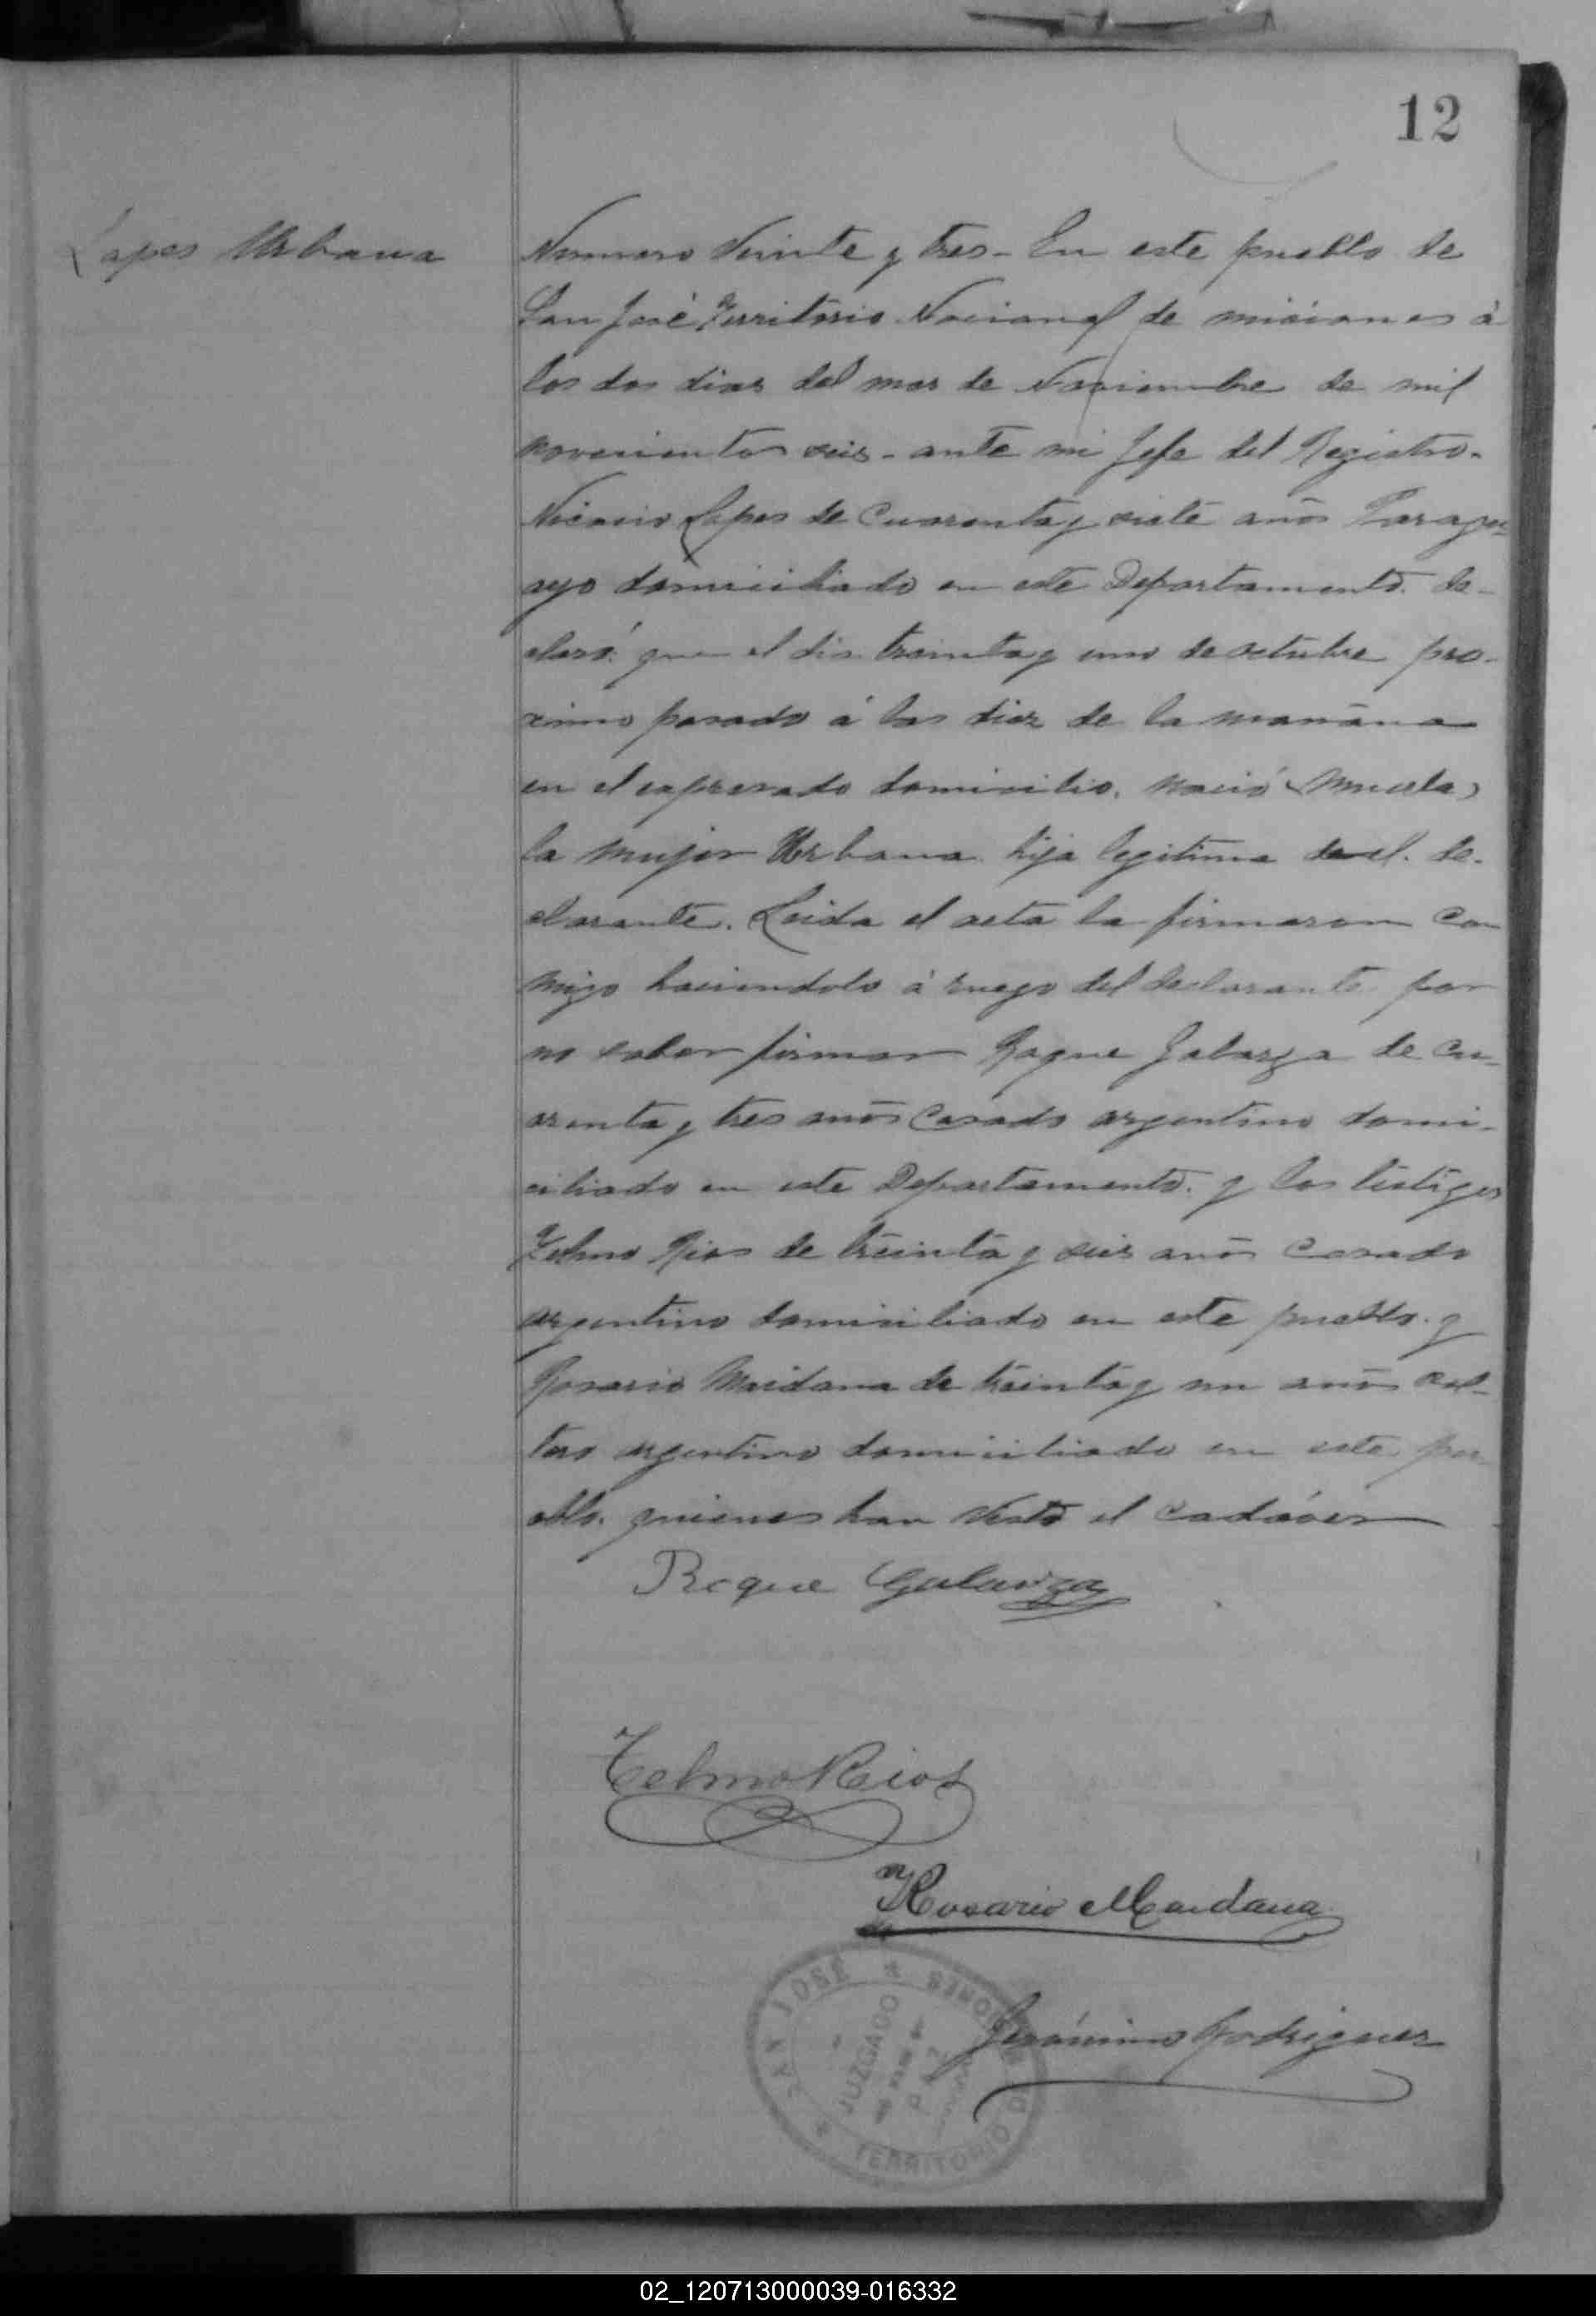 12
Lopes Urbana
Numero Veinte y tres - En este pueblo de
San José Territorio Nacional de misiones à
los dos dias del mes de Noviembre de mil
novecientos seis - ante mi Jefe del Registro.
Nicasio Lopes de Cuarenta y siete años Paragu-
ayo domiciliado en este Departamento. de-
claró: que el dia treinta y uno de octubre pro-
ximo pasado á las diez de la mañana
en el expresado domicilio. nació (muerta)
la mujer Urbana hija legitima de el. de-
clarante. Leida el acta la firmaron con
migo haciendolo á ruego del declarante por
no saber firmar Roque Galarza de cu-
arenta y tres años Casado argentino domi-
ciliado en este Departamento. y los testigos
Telmo Rios de treinta y seis años casado
argentino domiciliado en este pueblo. y
Rosario Maidana de treinta y un años sol-
tero argentino domiciliado en este pu
eblo. quienes han visto el cadáver
Roque Galarza
Telmo Rios
Rosario Maidana
Jerónimo Rodriguez
SAN JOSÉ * MISIONES
JUZGADO
DE
PAZ
TERRITORIO DE
02_120713000039-016332